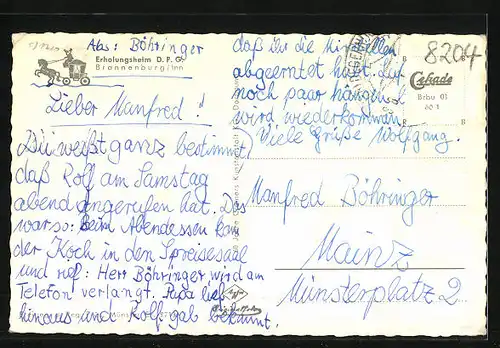 Abs: Böhringer
Erholungsheim D. P. G.
Brannenburg/Inn
Lieber Manfred!
Du weißt ganz bestimmt
daß Rolf am Samstag
abend angerufen hat. Das
war so: beim Abendessen kam
der Koch in den Spreisesaal
und rief: Herr Böhringer wird am
Telefon verlangt. Papa lief
hinaus und Rolf gab bekannt.
daß ihr die Mirabellen
abgeerntet habt. Auf
noch paar hängen
wird wiederkommen
Viele Grüße Wolfgang.
8204
Cekade
Bzbu 01
60 1
Manfred Böhringer
Mainz
Münsterplatz 2